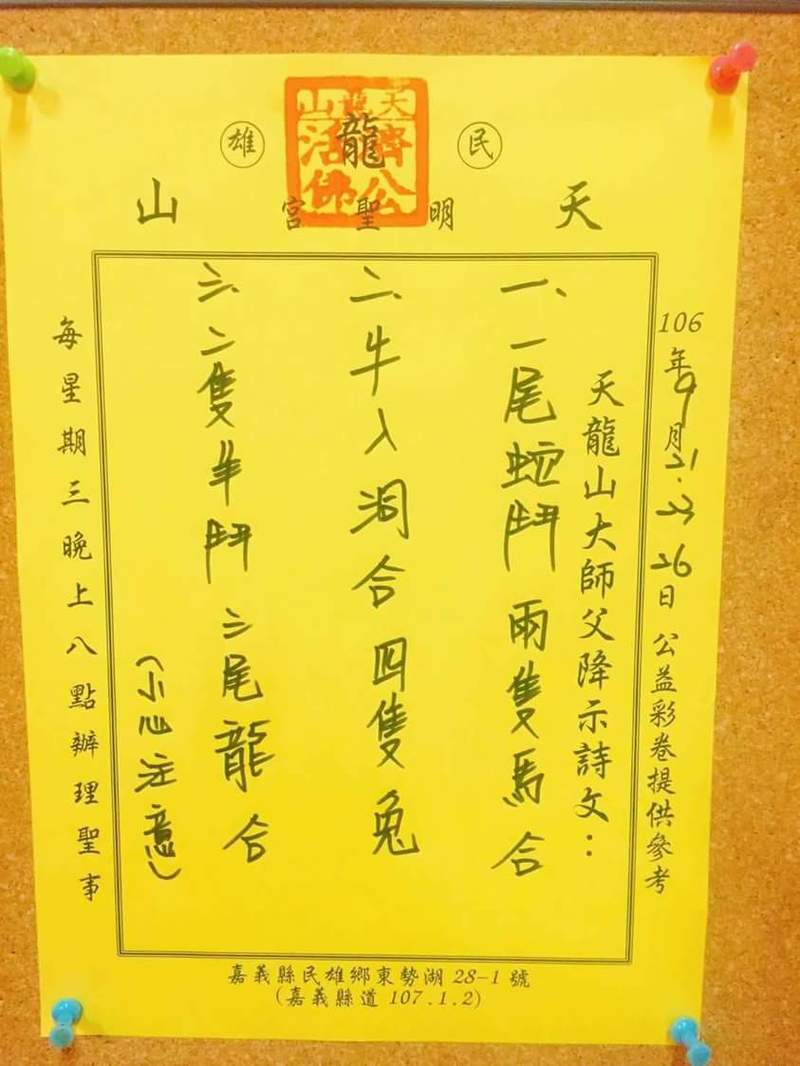 民雄
天龍山
明聖宮
天龍山
濟公
活佛
106年9月21.23 26日 公益彩卷提供參考
天龍山大師父降示詩文：
一、一尾蛇鬥兩隻馬合
二、牛入洞合四隻兔
三、二隻羊鬥三尾龍合
(小心注意)
每星期三晚上八點辦理聖事
嘉義縣民雄鄉東勢湖28-1號
(嘉義縣道107.1.2)